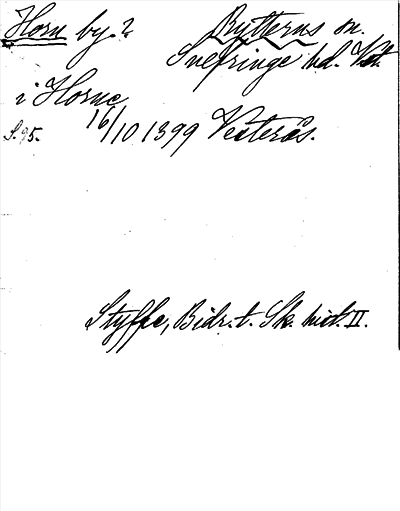 Horn by? Rytterns sn.
Snefringe hd. Vstm.
i Horne
S. 95. 16/10 1399 Vesterås.
Styffe, Bidr. t. Sk. hist. II.